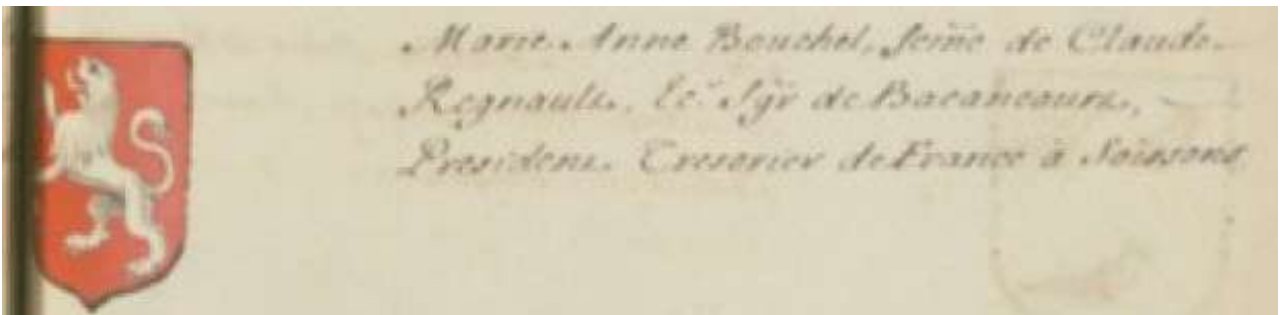 Marie Anne Bouchel, femē de Claude
Regnault, Ec.r Sgr de Bacancourt,
President Tresorier de France à Soissons